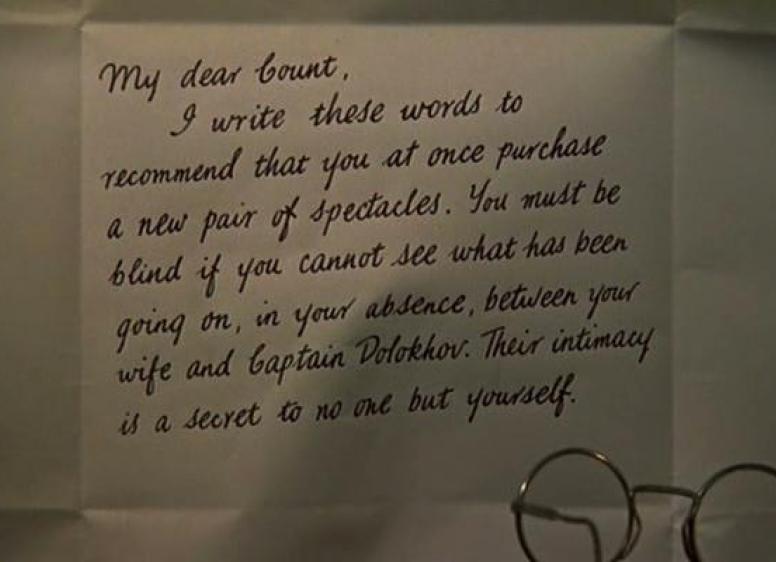 My dear Count,
I write these words to
recommend that you at once purchase
a new pair of spectacles. You must be
blind if you cannot see what has been
going on, in your absence, between your
wife and Captain Dolokhov. Their intimacy
is a secret to no one but yourself.